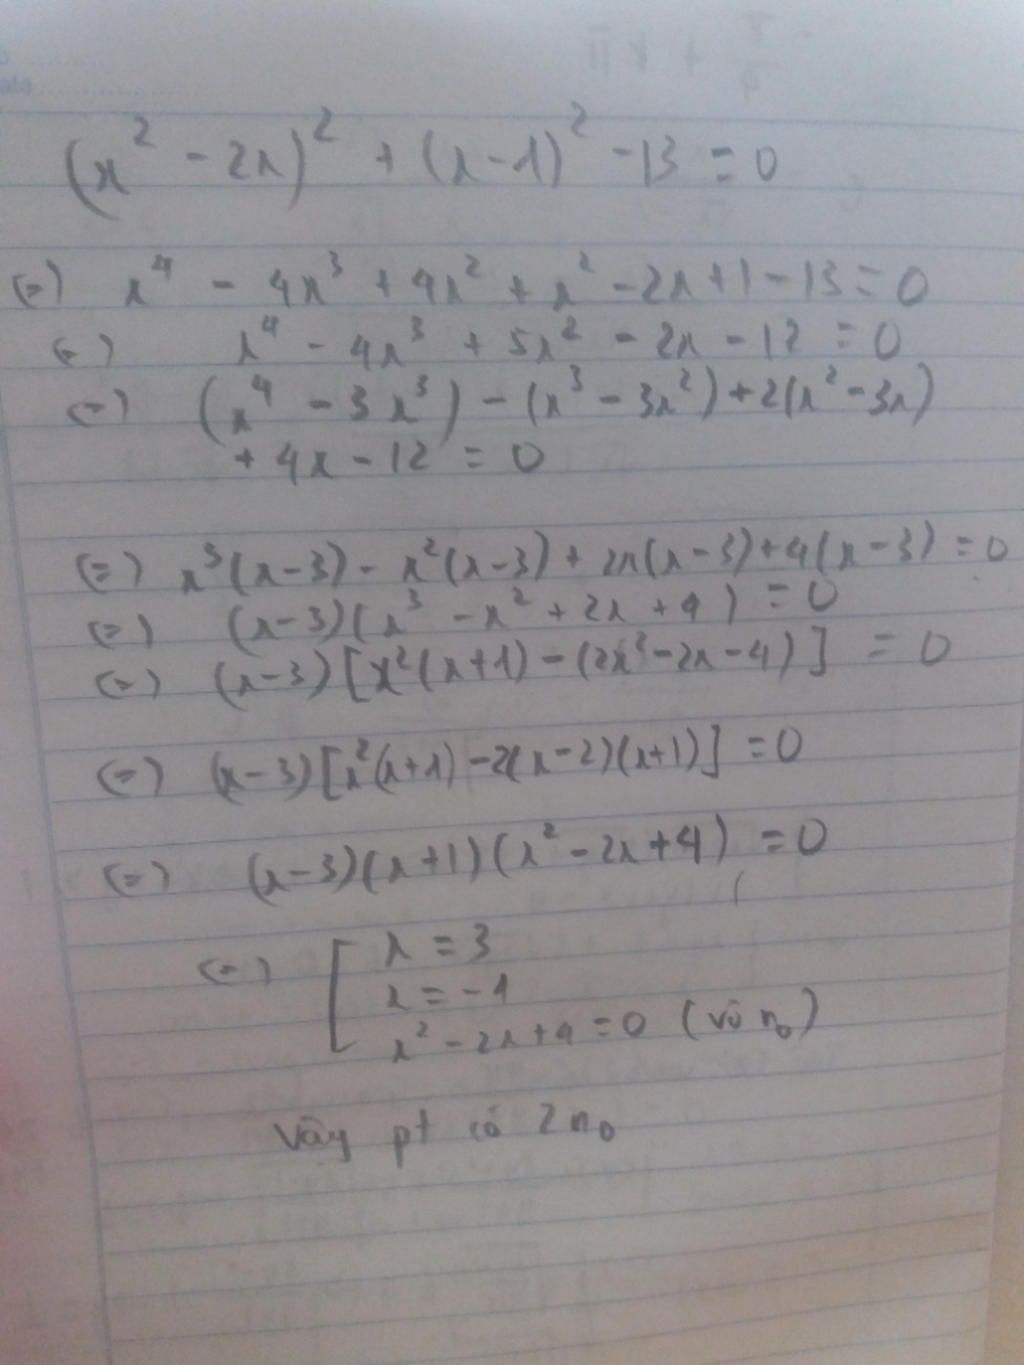 ate
(x² - 2x)² + (x-1)² - 13 = 0
(=) x⁴ - 4x³ + 4x² + x² - 2x + 1 - 13 = 0
(=) x⁴ - 4x³ + 5x² - 2x - 12 = 0
(=) (x⁴ - 3x³) - (x³ - 3x²) + 2(x² - 3x)
+ 4x - 12 = 0
(=) x³(x-3) - x²(x-3) + 2x(x-3) + 4(x-3) = 0
(=) (x-3)(x³ - x² + 2x + 4) = 0
(=) (x-3)[x²(x+1) - (2x² - 2x - 4)] = 0
(=) (x-3)[x²(x+1) - 2(x-2)(x+1)] = 0
(=) (x-3)(x+1)(x² - 2x + 4) = 0
(=) [ x = 3
x = -1
x² - 2x + 4 = 0 (vô n₀)
Vậy pt có 2 n₀